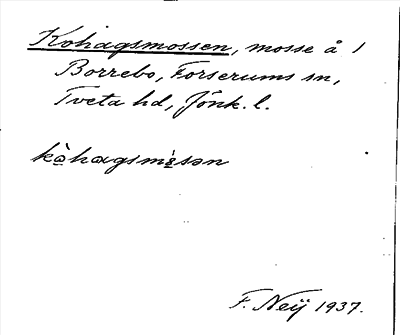 Kohagsmossen, mosse å 1
Borrebo, Forserums sn,
Tveta hd, Jönk. l.
kòhagsmòsən
F. Neij 1937.